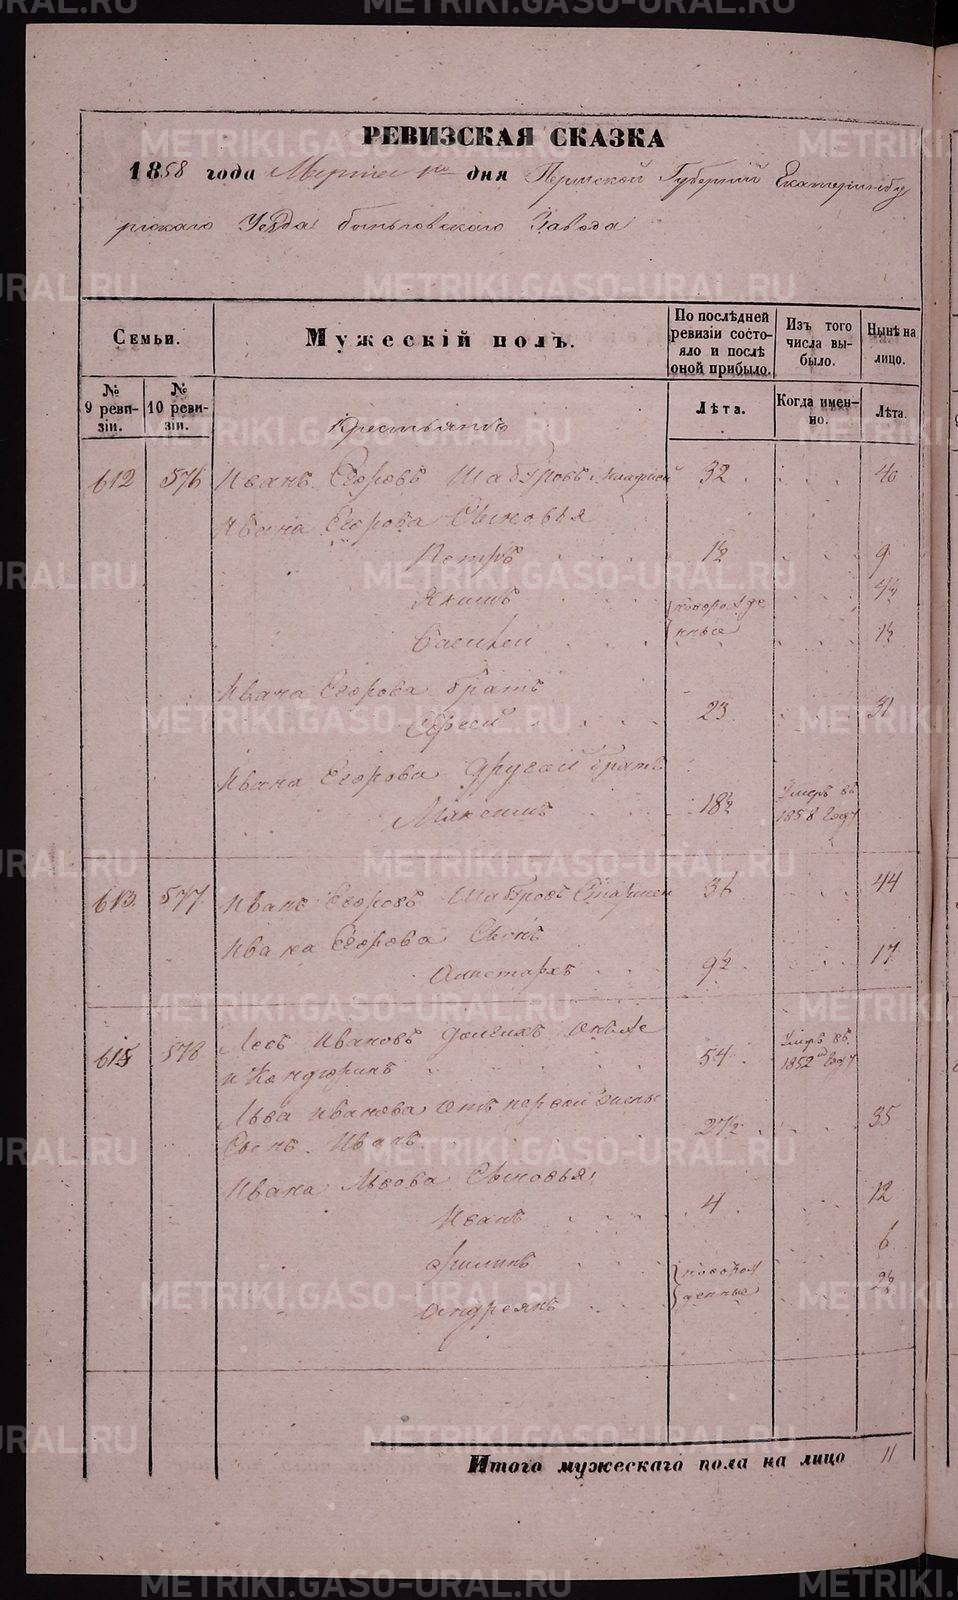 РЕВИЗСКАЯ СКАЗКА
1858 года Марта 1го дня Пермской Губерніи Екатеринбу
ргскаго Уезда быньговскаго Завода
Семьи.
Мужескій полъ.
По послѣдней ревизіи состояло и послѣ оной прибыло.
Изъ того числа выбыло.
Нынѣ на лицо.
№ 9 ревизіи.
№ 10 ревизіи.
Лѣта.
Когда именно.
Лѣта.
Крестьянъ
612 576 Иванъ Егоровъ Шабровъ младшей 32 40
Ивана Егорова Сыновья
Петръ 1½ 9
Якимъ новорожде 4½
Василей нные 1½
Ивана Егорова братъ
Сергей 23 31
Ивана Егорова другой братъ
Максимъ 18½ Умеръ въ 1858 году
613 577 Иванъ Егоровъ Шабровъ Старшей 36 44
Ивана Егорова Сынъ
Алистархъ 9½ 17
615 578 Левъ Ивановъ Долгихъ онъ же
и Кандюринъ 54 Умеръ въ 1852м году
Льва Иванова отъ первой жены
Сынъ Иванъ 27½ 35
Ивана Львова Сыновья
Иванъ 4 12
Филипъ новорож 6
Андреянъ денные 2½
Итого мужескаго пола на лицо 11
METRIKI.GASO-URAL.RU